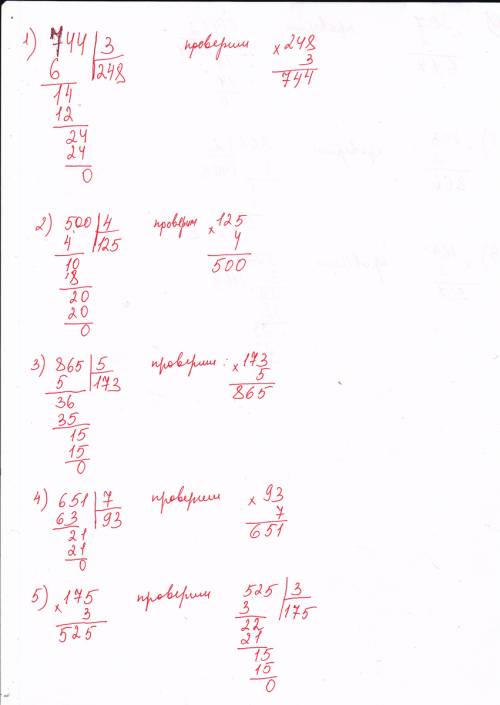 1) 744 | 3 проверим × 248
6 248 3
14 744
12
24
24
0
2) 500 | 4 проверим × 125
4 125 4
10 500
8
20
20
0
3) 865 | 5 проверим: × 173
5 173 5
36 865
35
15
15
0
4) 651 | 7 проверим × 93
63 93 7
21 651
21
0
5) × 175 проверим 525 | 3
3 3 175
525 22
21
15
15
0